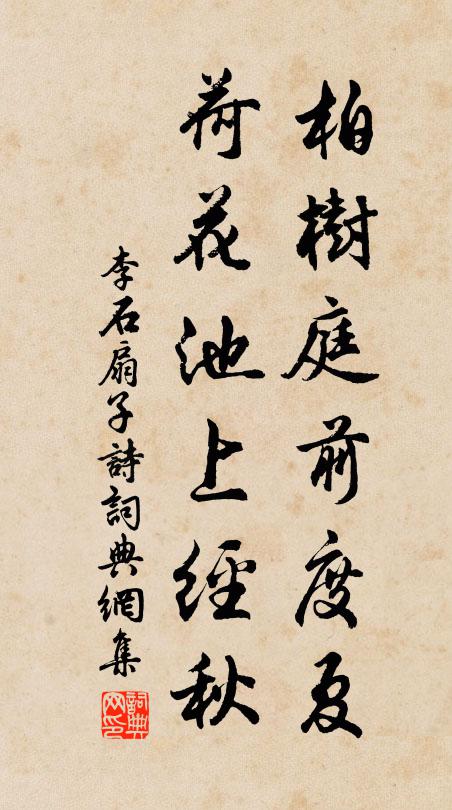 柏樹庭前度夏
荷花池上經秋
李石扇子詩詞典網集
詞典网印